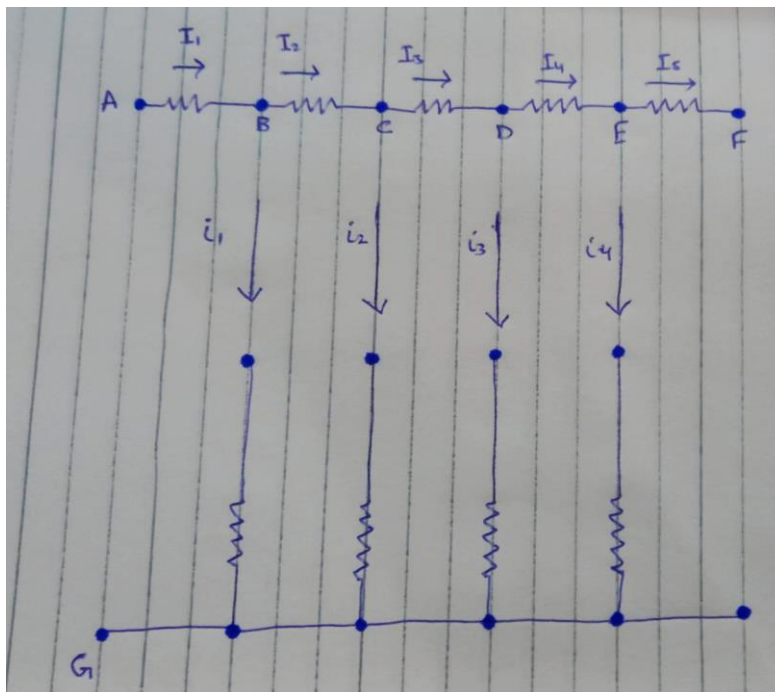 I₁ I₂ I₃ I₄ I₅
A B C D E F
i₁ i₂ i₃ i₄
G